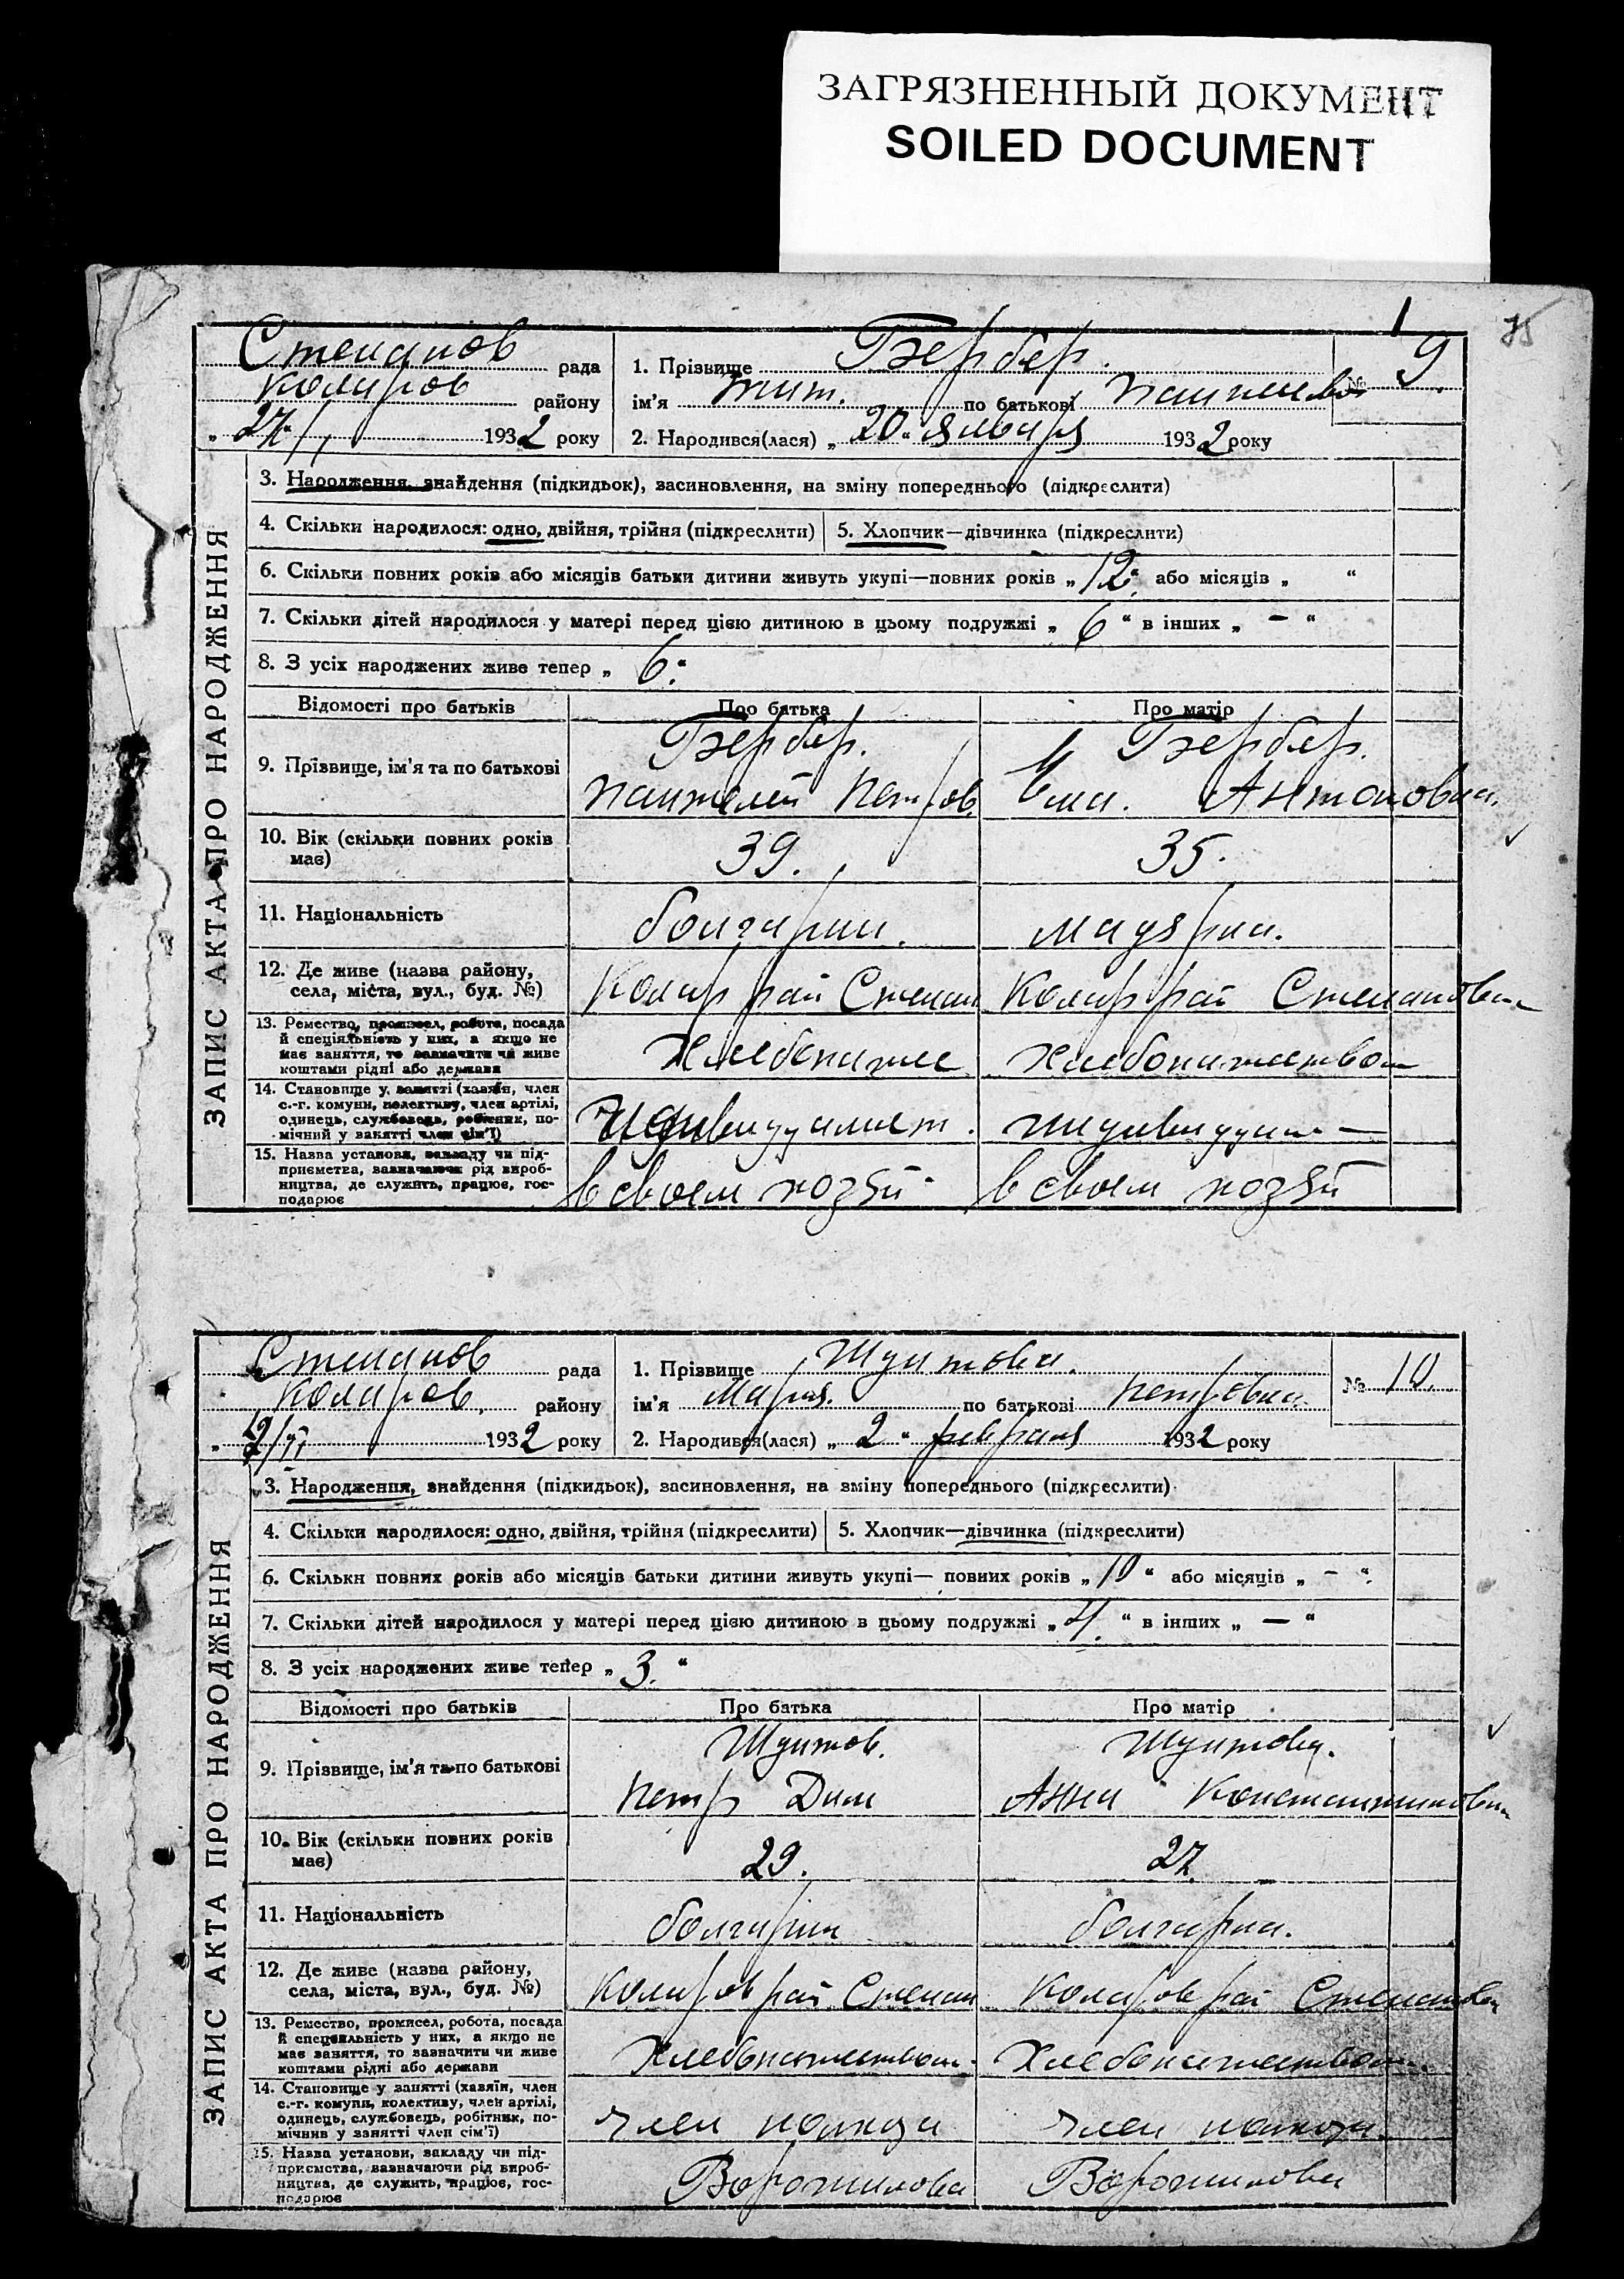 ЗАГРЯЗНЕННЫЙ ДОКУМЕНТ
SOILED DOCUMENT
75
ЗАПИС АКТА ПРО НАРОДЖЕННЯ
Степанов рада
Коларов району
„ 27/I 1932 року
1. Прізвище Бербер.
ім'я по батькові
№ 9
2. Народився(лася) „ 20 “ января 1932 року
3. Народження, знайдення (підкидьок), засиновлення, на зміну попереднього (підкреслити)
4. Скільки народилося: одно, двійня, трійня (підкреслити)
5. Хлопчик—дівчинка (підкреслити)
6. Скільки повних років або місяців батьки дитини живуть укупі—повних років „ 12 “ або місяців „ “
7. Скільки дітей народилося у матері перед цією дитиною в цьому подружжі „ 6 “ в інших „ — “
8. З усіх народжених живе тепер „ 6 “
Відомості про батьків Про батька Про матір
9. Прізвище, ім'я та по батькові
Бербер. Бербер.
Пантелей Петров. Антоновна
10. Вік (скільки повних років має)
39. 35.
11. Національність
болгарин.
12. Де живе (назва району, села, міста, вул., буд. №)
Колар рай Степан Колар рай Степановка
13. Ремество, промисел, робота, посада й спеціяльність у них, а якщо не має заняття, то зазначити чи живе коштами рідні або держави
Хлебопаше Хлебопашеством
14. Становище у занятті (хазяїн, член с.-г. комуни, колективу, член артілі, одинець, службовець, робітник, помічний у занятті член сім'ї)
Индивидуалист. индивидуал—
15. Назва установи, закладу чи підприємства, зазначаючи рід виробництва, де служить, працює, господарює
в своем хозяй в своем хозяй
ЗАПИС АКТА ПРО НАРОДЖЕННЯ
Степанов рада
Коларов. району
„ 2/II 1932 року
1. Прізвище Шунтова.
ім'я Мария. по батькові Петровна.
№ 10
2. Народився(лася) „ 2 “ февраля 1932 року
3. Народження, знайдення (підкидьок), засиновлення, на зміну попереднього (підкреслити)
4. Скільки народилося: одно, двійня, трійня (підкреслити)
5. Хлопчик—дівчинка (підкреслити)
6. Скільки повних років або місяців батьки дитини живуть укупі— повних років „ 10 “ або місяців „ — “
7. Скільки дітей народилося у матері перед цією дитиною в цьому подружжі „ 4. “ в інших „ — “
8. З усіх народжених живе тепер „ 3. “
Відомості про батьків Про батька Про матір
9. Прізвище, ім'я та по батькові
Шунтов. Шунтова.
Петр Дим Анна Константиновна
10. Вік (скільки повних років має)
29. 27
11. Національність
болгарин болгарка.
12. Де живе (назва району, села, міста, вул., буд. №)
Коларов рай Степан Коларов рай Степановка
13. Ремество, промисел, робота, посада й спеціяльність у них, а якщо не має заняття, то зазначити чи живе коштами рідні або держави
Хлебопашеством. Хлебопашеством.
14. Становище у занятті (хазяїн, член с.-г. комуни, колективу, член артілі, одинець, службовець, робітник, помічний у занятті член сім'ї)
член колхоза член колхоза
15. Назва установи, закладу чи підприємства, зазначаючи рід виробництва, де служить, працює, господарює
Ворошилова Ворошилова